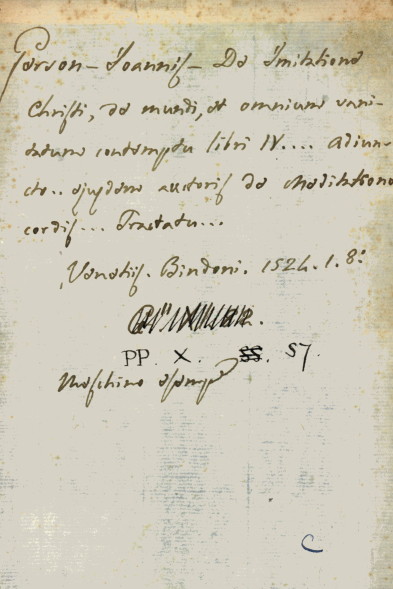 Gerson - Joannis - De Imitatione
Christi, de mundi, et omnium vani-
tatum contemptu libri IV.... adiun-
cto.. ejusdem auctoris de Meditatione
cordis... Tractatu...
Venetiis. Bindoni. 1524. 1. 8:
PP. X. SS. 57.
Meschino esemp
C